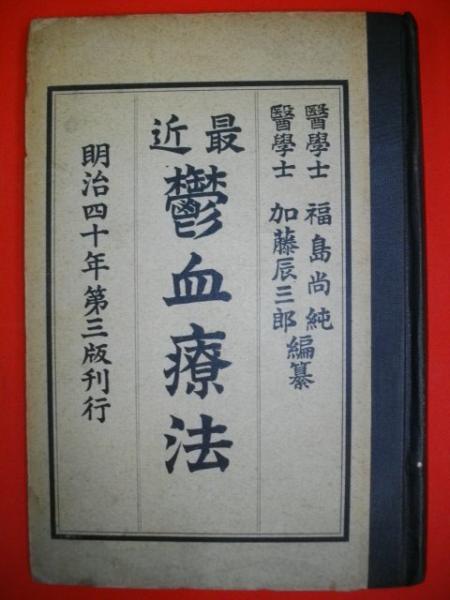 醫學士 福島尚純
醫學士 加藤辰三郎
編纂
最近
鬱血療法
明治四十年第三版刊行